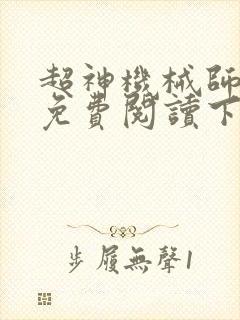 超神機械師
免費閱讀下
步履無聲1